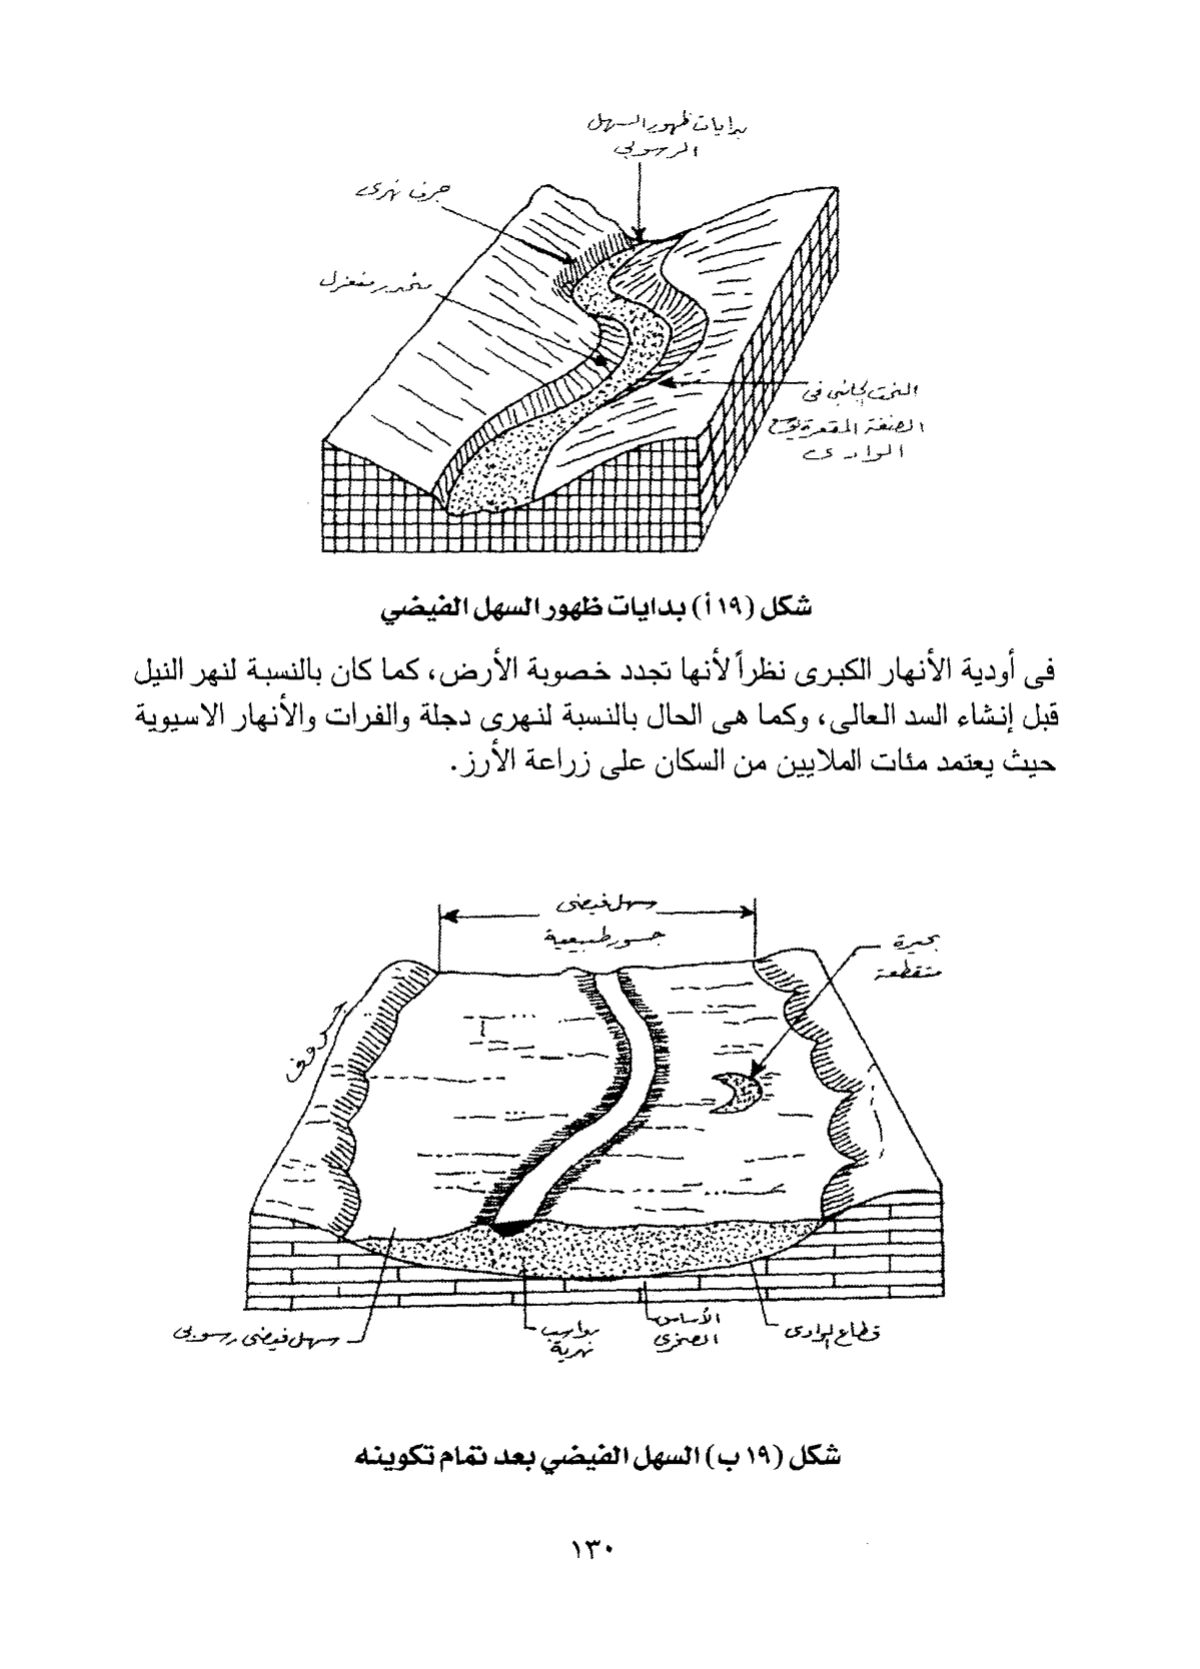 بدايات ظهور السهل
الرسوبى
جرف نهرى
منحدر منعزل
النحت الجانبى فى
الضفة المقعرة يوسع
الوادى
شكل (١٩ أ) بدايات ظهور السهل الفيضي
فى أودية الأنهار الكبرى نظراً لأنها تجدد خصوبة الأرض، كما كان بالنسبة لنهر النيل
قبل إنشاء السد العالى، وكما هى الحال بالنسبة لنهرى دجلة والفرات والأنهار الاسيوية
حيث يعتمد مئات الملايين من السكان على زراعة الأرز.
سهل فيضى
جسور طبيعية
بحيرة
متقطعة
جروف
سهل فيضى رسوبى
رواسب
نهرية
الأساس
الصخرى
قطاع الوادى
شكل (١٩ ب) السهل الفيضي بعد تمام تكوينه
١٣٠